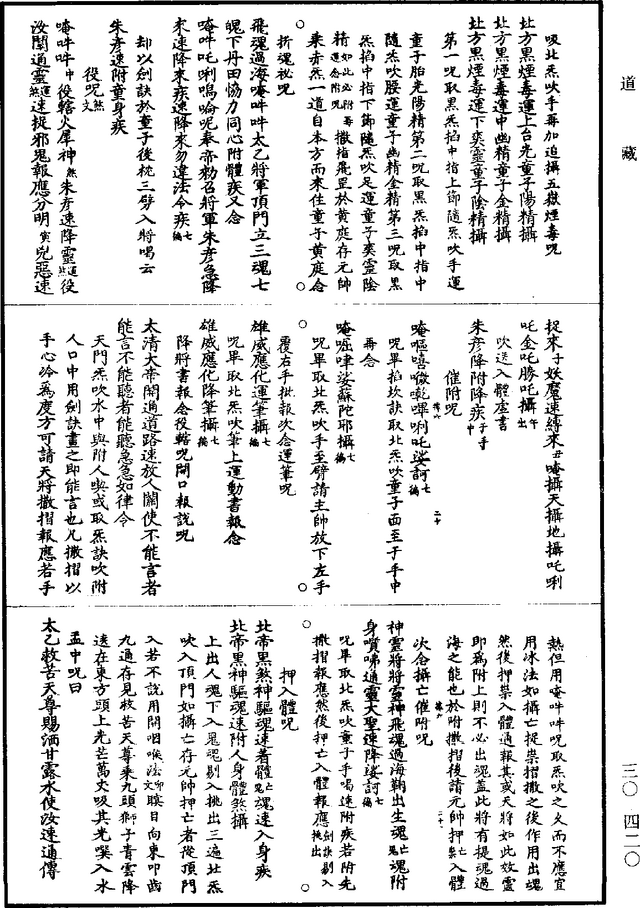 道藏
吸北炁吹手再加追攝五嶽煙毒呪
北方黑煙毒運上台光童子陽精攝
北方黑煙毒運中幽精童子金精攝
北方黑煙毒運下奕靈童子陰精攝
第一呪取黑炁掐中指上節隨炁吹手運
童子胎光陽精第二呪取黑炁掐中指中
隨炁吹腰運童子幽精金精第三呪取黑
炁掐中指下節隨炁吹足運童子奕靈陰
精如此必附再運念附呪撒指飛罡於黃庭存元帥
乘赤炁一道自本方而來住童子黃庭念
折魂祕呪
飛魂過海唵吽吽太乙將軍頂門立三魂七
魄下丹田協力同心附體疾又念
唵吽吒唎嗚喻呢奉赤勑召將軍朱彥急降
來速降來疾速降來勿違法令疾七徧
却以劍訣於童子後枕三劈入將喝云
朱彥速附童身疾
役呪煞文
唵吽吽中役轄火犀神煞朱彥速降靈運役
汝聞通靈運煞速捉邪鬼報應分明寅兇惡速
捉來子妖魔速縛來丑唵攝天攝地攝吒唎
吒金吒勝吒攝午出
吹送入體虛書
朱彥降附降疾子手中
催附呪
唵嘔嘻㗸㘈嘽唎吒娑訶七徧
呪畢掐坎訣取北炁吹童子面至于手中
再念
唵嘔㖿娑蘇陀耶攝七徧
呪畢取北炁吹手至臂請主帥放下左手
覆右手批報次念運筆呪
雄威應化運筆攝七徧
呪畢取北炁吹筆上運動書報念
雄威應化降筆攝七徧
降將書報念役轄呪開口報說呪
太清大帝開通道路速放人關使不能言者
能言不能聽者能聽急急如律令
天門炁吹水中與附人喫或取炁訣吹附
人口中用劍訣畫之即能言也凡撒摺以
手心冷爲度方可請天將撒摺報應若手
熱但用唵吽吽呪取炁吹之久而不應宜
用氷法如攝亡捉祟摺撒之後作用出魂
然後押祟入體通報其或天將如此效靈
即爲附上則不必出魂蓋此將有提魂過
海之能也於附撒摺後請元帥押亡祟入體
次念攝亡催附呪
神靈將將靈神飛魂過海朝出生魂亡鬼魂附
身嘪唏通靈大聖速降娑訶七徧
呪畢取北炁吹童子手喝速附疾若附先
撒摺報應然後押亡入體報應劍訣剔入挑出
押入體呪
北帝黑煞神驅魂速著體亡鬼魂速入身疾
北帝黑神驅魂速附人身體煞攝
上出人魂下入鬼魂剔入挑出三遍北炁
吹入頂門如攝亡存元帥押亡者從頂門
入若不說用開咽喉法文印瞑目向東叩齒
九通存見救苦天尊乘九頭獅子青雲降
送在東方頭上光芒萬丈吸其光噀入水
盂中呪曰
太乙救苦天尊賜洒甘露水使汝速通傳
三〇 四二〇